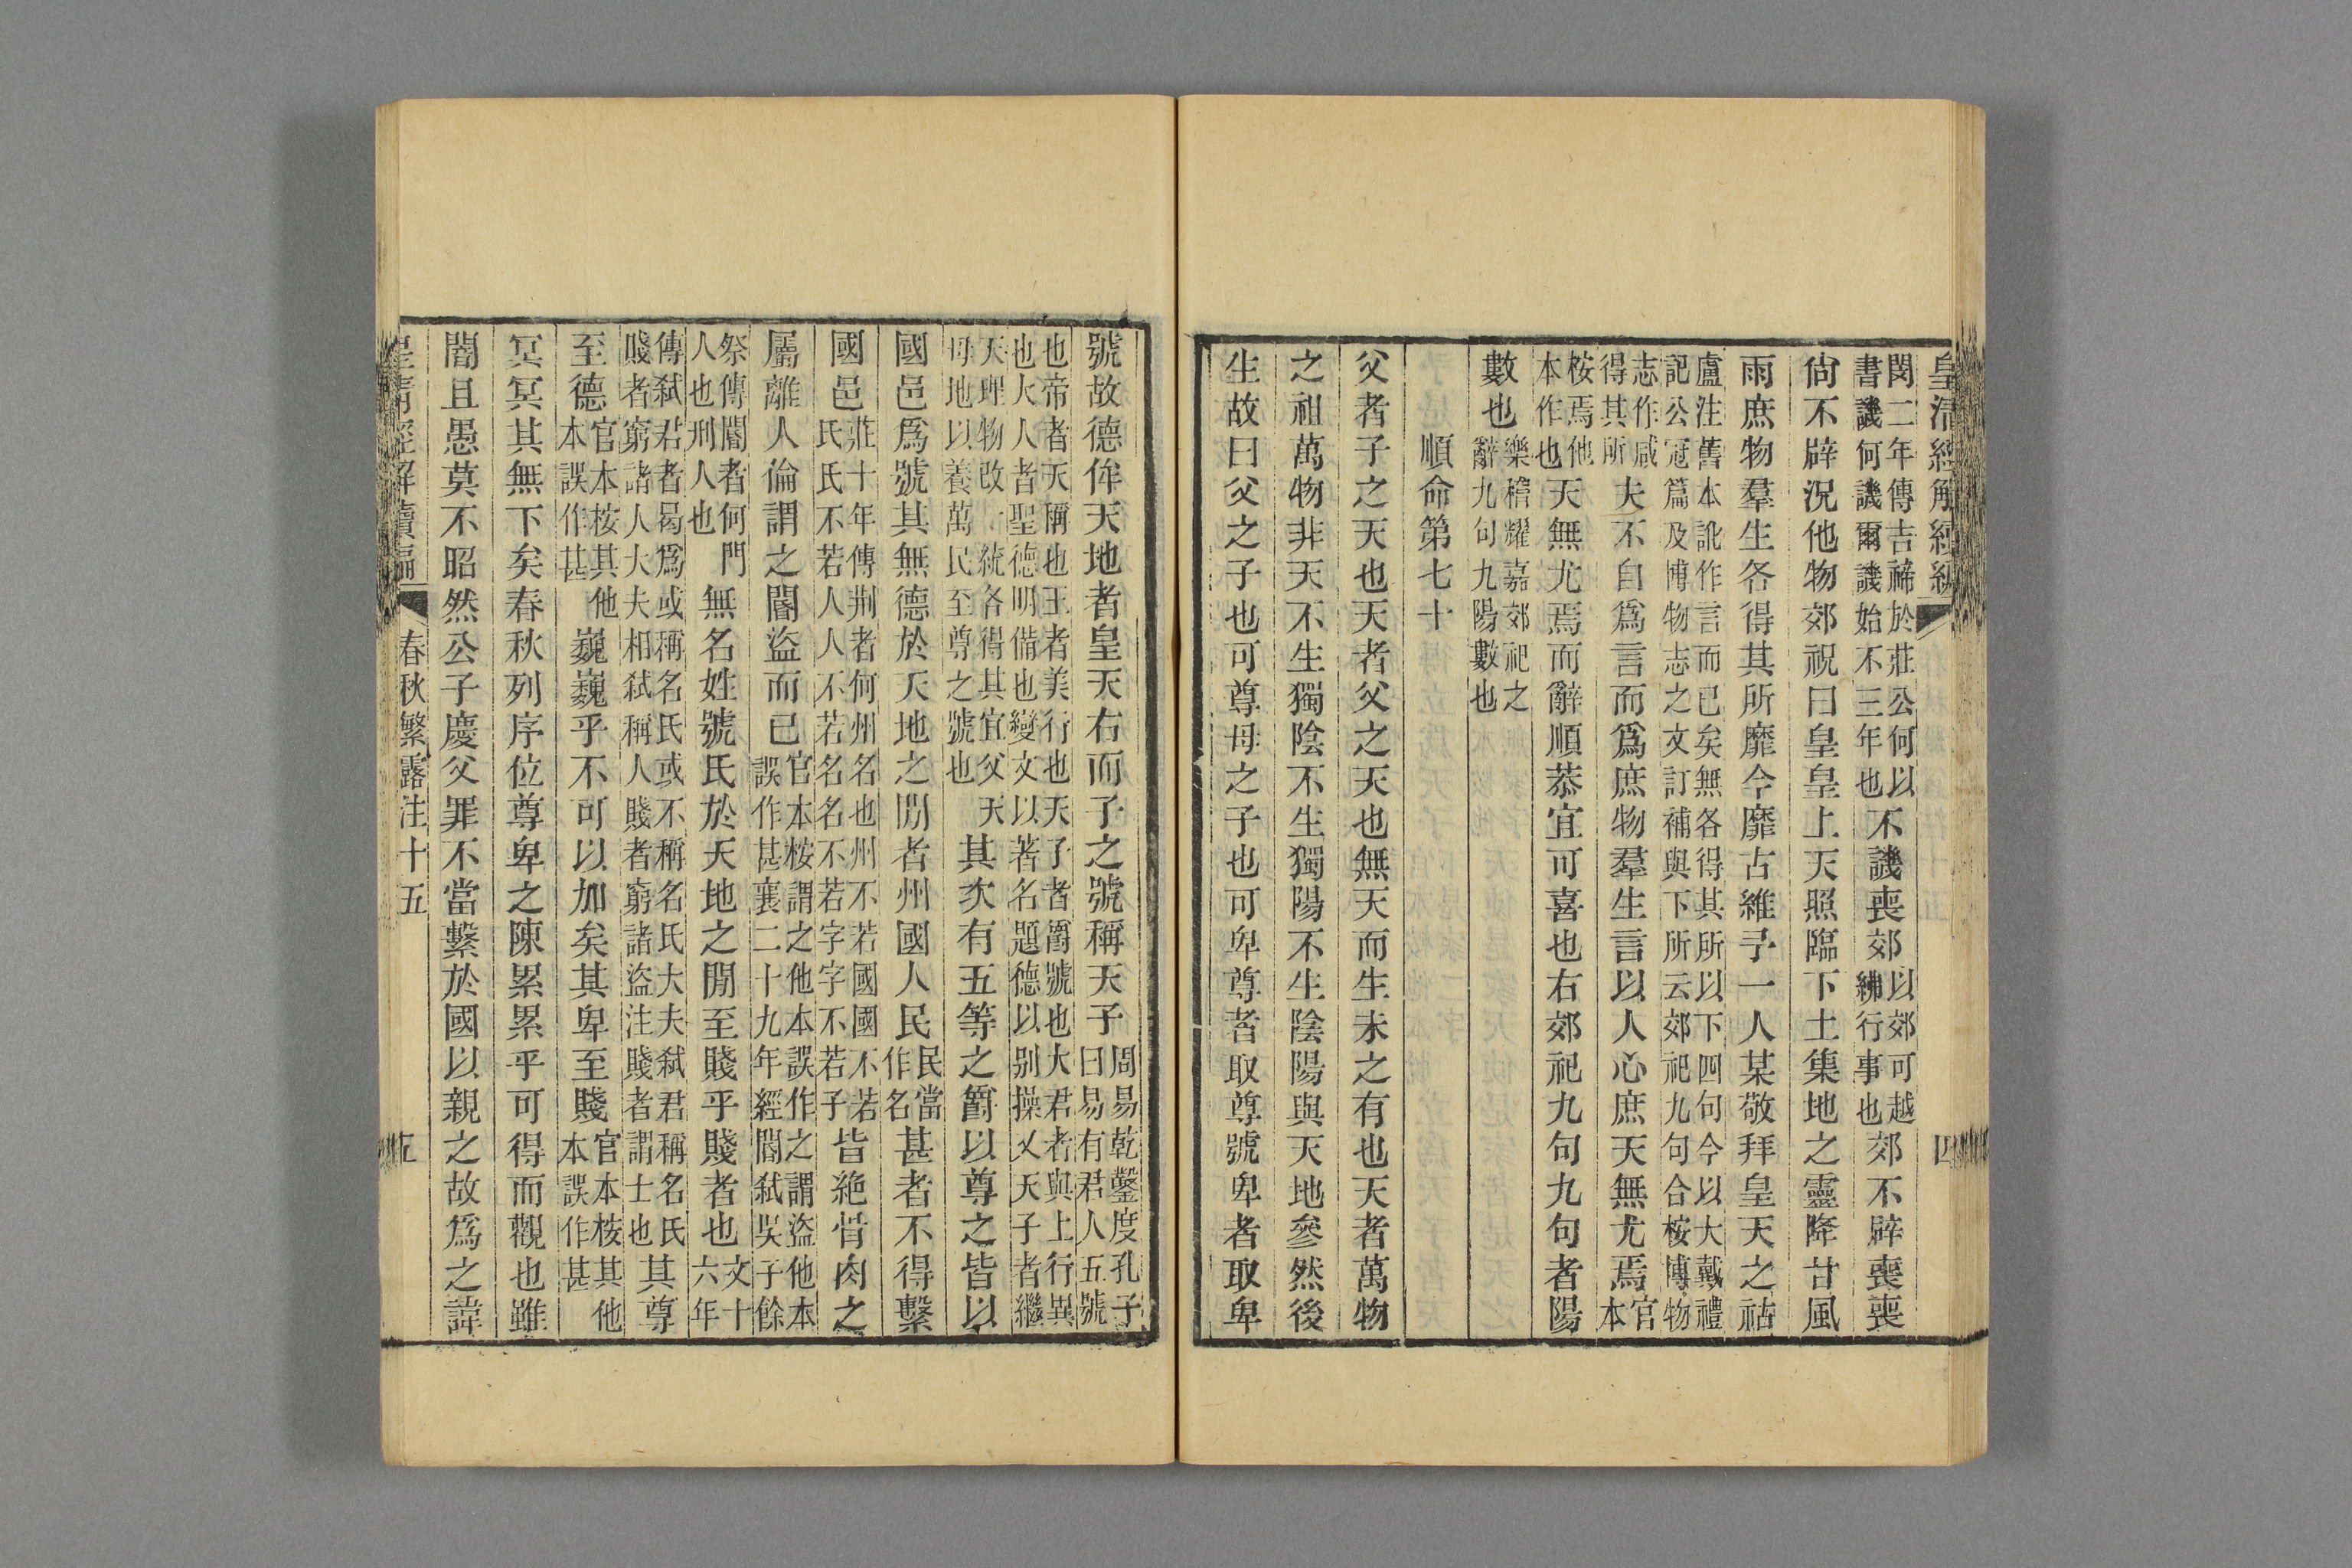 閔二年傳吉禘於莊公何以書譏何譏爾譏始不三年也不譏喪郊以郊可越紼行事也郊不辟喪喪
尙不辟況他物郊祝曰皇皇上天照臨下土集地之靈降甘風
雨庶物羣生各得其所靡今靡古維予一人某敬拜皇天之祜
盧注舊本訛作言而已矣無各得其所以下四句今以大戴禮記公冠篇及博物志之文訂補與下所云郊祀九句合桉博物
志作咸得其所夫不自爲言而爲庶物羣生言以人心庶天無尤焉官本
桉焉他本作也天無尤焉而辭順恭宜可喜也右郊祀九句九句者陽
數也樂稽耀嘉郊祀之辭九句九陽數也
順命第七十
父者子之天也天者父之天也無天而生未之有也天者萬物
之祖萬物非天不生獨陰不生獨陽不生陰陽與天地參然後
生故曰父之子也可尊母之子也可卑尊者取尊號卑者取卑
號故德侔天地者皇天右而子之號稱天子周易乾鑿度孔子曰易有君人五號
也帝者天稱也王者美行也天子者爵號也大君者與上行異也大人者聖德明備也變文以著名題德以别操又天子者繼
天理物改一統各得其宜父天母地以養萬民至尊之號也其次有五等之爵以尊之皆以
國邑爲號其無德於天地之閒者州國人民民當作名甚者不得繫
國邑莊十年傳荆者何州名也州不若國國不若氏氏不若人人不若名名不若字字不若子皆絶骨肉之
屬離人倫謂之閽盜而已官本桉謂之他本誤作之謂盜他本誤作甚襄二十九年經閽弑吳子餘
祭傳閽者何門人也刑人也無名姓號氏於天地之閒至賤乎賤者也文十六年
傳弑君者曷爲或稱名氏或不稱名氏大夫弑君稱名氏賤者窮諸人大夫相弑稱人賤者窮諸盜注賤者謂士也其尊
至德官本桉其他本誤作甚巍巍乎不可以加矣其卑至賤官本桉其他本誤作甚
冥冥其無下矣春秋列序位尊卑之陳累累乎可得而觀也雖
闇且愚莫不昭然公子慶父罪不當繫於國以親之故爲之諱
春秋繁露注十五